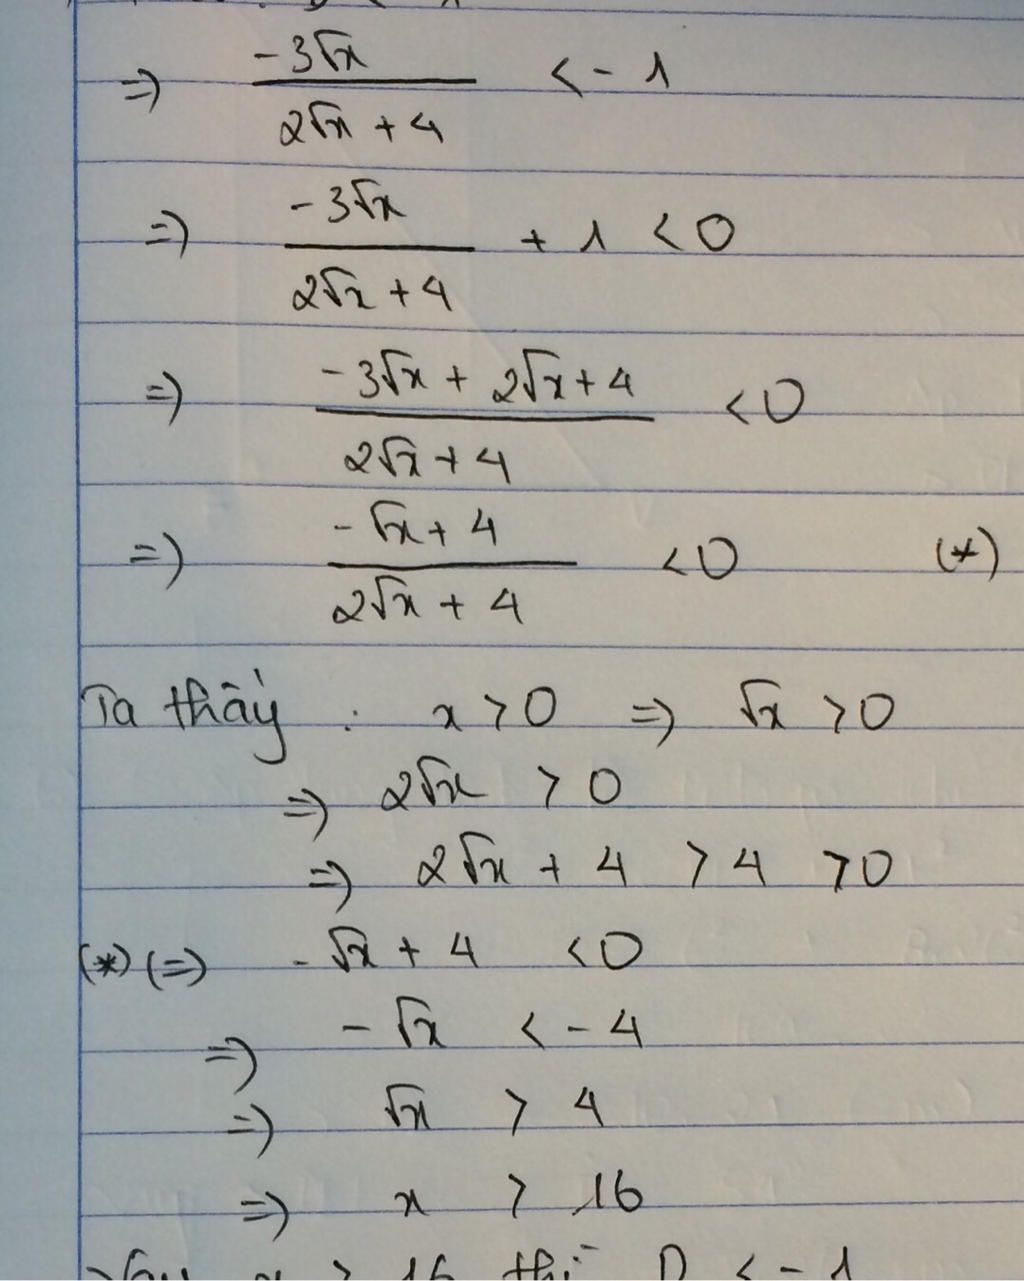 => -3√x / 2√x + 4 < -1
=> -3√x / 2√x + 4 + 1 < 0
=> -3√x + 2√x + 4 / 2√x + 4 < 0
=> -√x + 4 / 2√x + 4 < 0 (*)
Ta thấy : x > 0 => √x > 0
=> 2√x > 0
=> 2√x + 4 > 4 > 0
(*) (=> -√x + 4 < 0
=> -√x < -4
=> √x > 4
=> x > 16
x > 16 thì D < -1